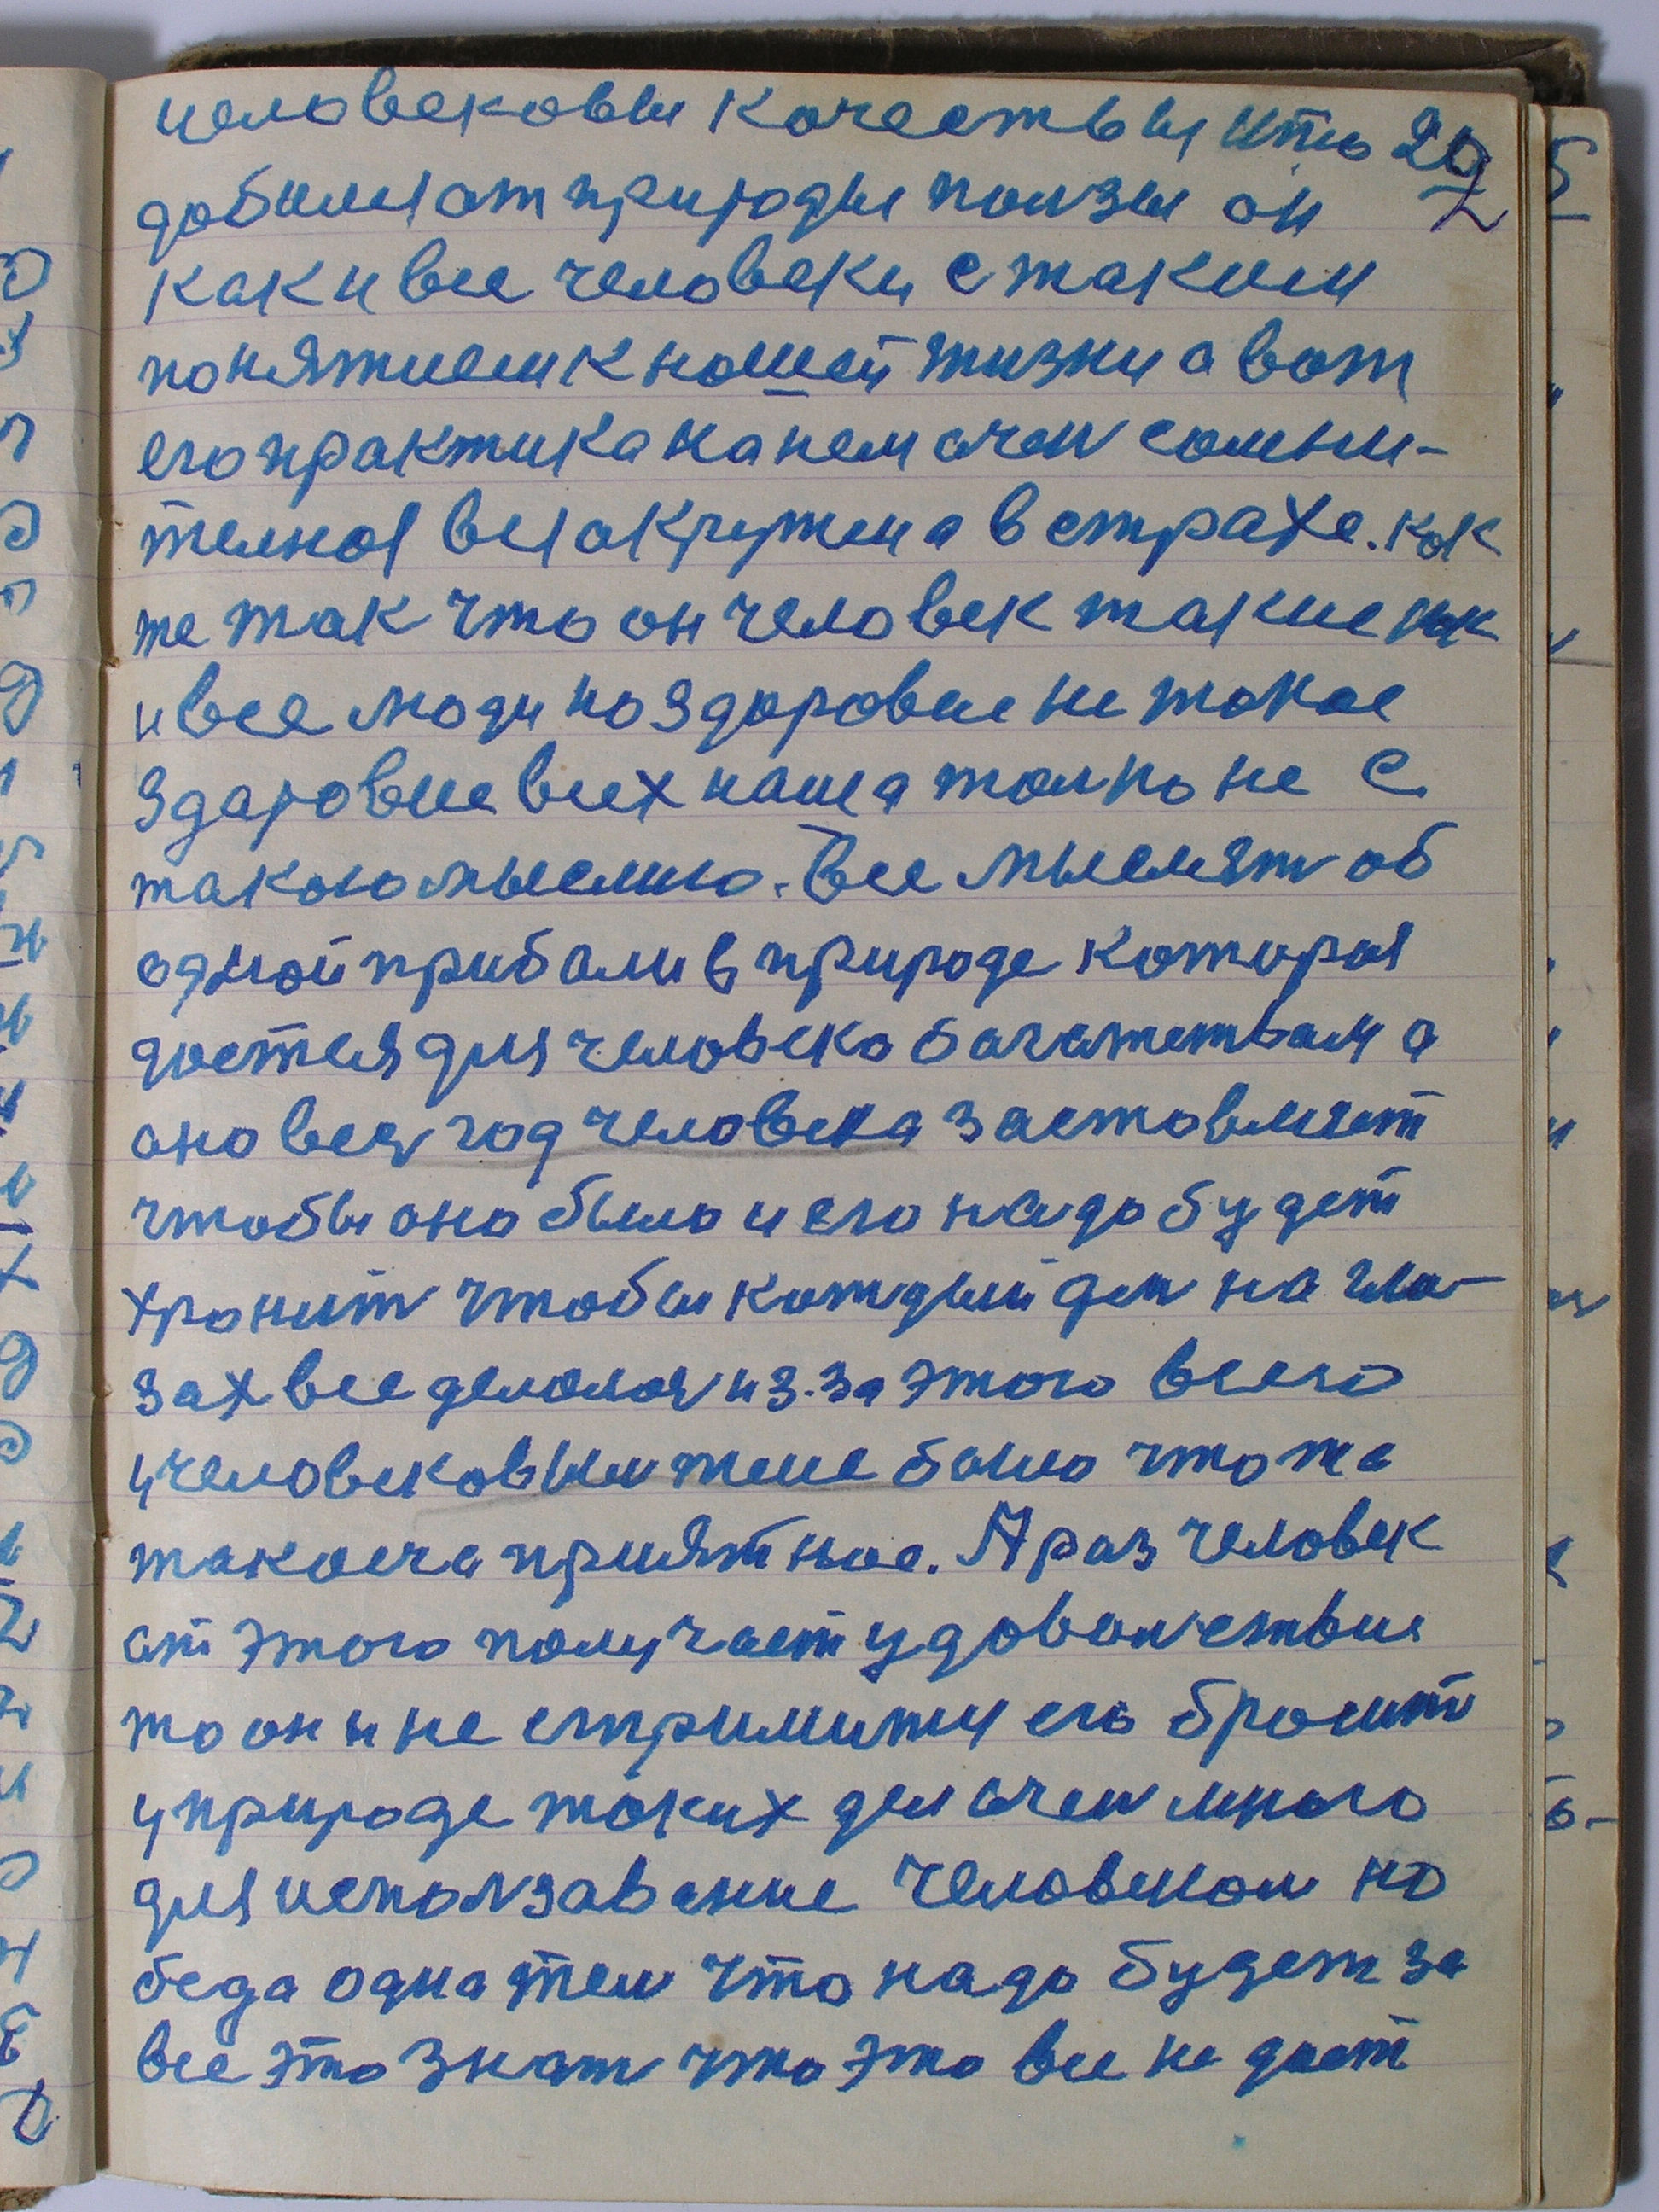 человековы качествы что 29
добился от природы ползы он
как и все человеки с таким
понятием к нашей жизни а вот
его практика на нем очен сомни-
телноя вся окружена в страхе. как
же так что он человек такие как
и все люди но здоровие не такое
здаровие всех наше толко не с
такою мыслию. Все мыслят об
одной прибали в природе которая
достся для человека богатством а
оно весь год человека заставляет
чтобы оно было и его надо будет
хронит чтобы каждый ден на гла-
зах все делолося из-за этого всего
у человековым теле было что то
такоеча приятное. А раз человек
от этого получает удоволствия
то он и не стримится его бросит
у природе таких дел очен много
для исползавание человеком но
беда одна тем что надо будет за
все это знат что это все не дает